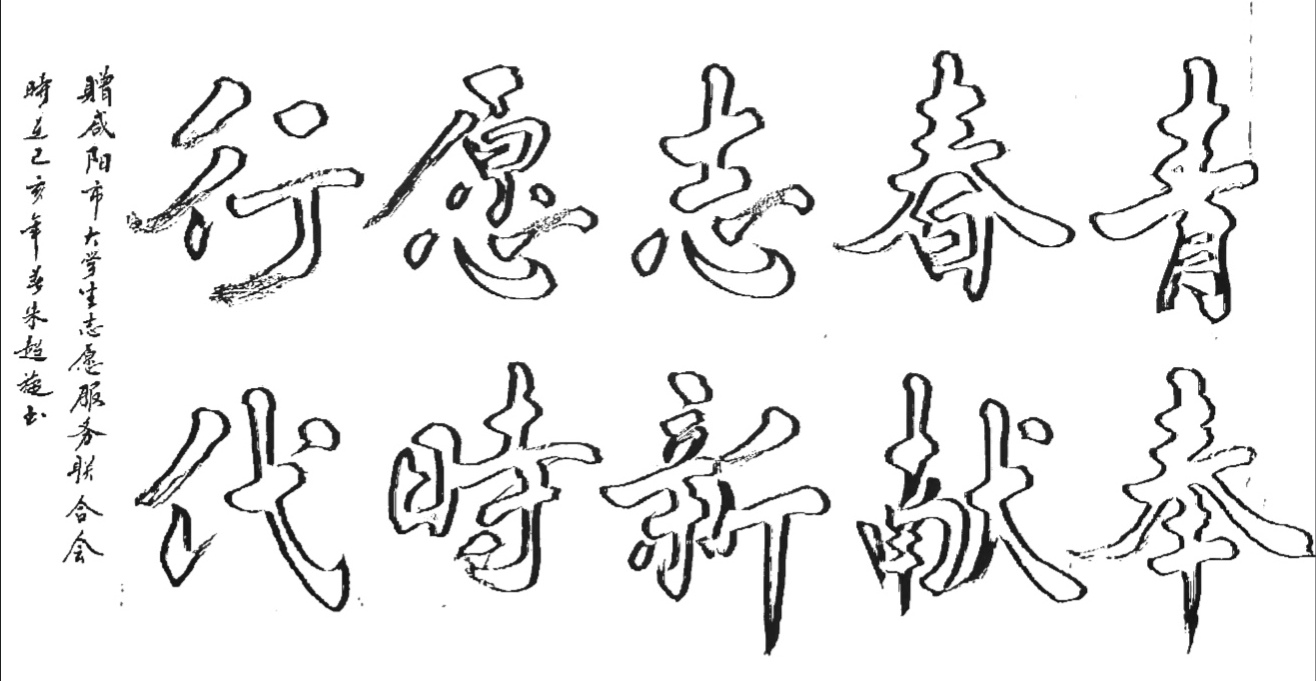 青春志愿行
奉献新時代
贈咸阳市大学生志愿服务联合会
時在己亥年春朱超旋书